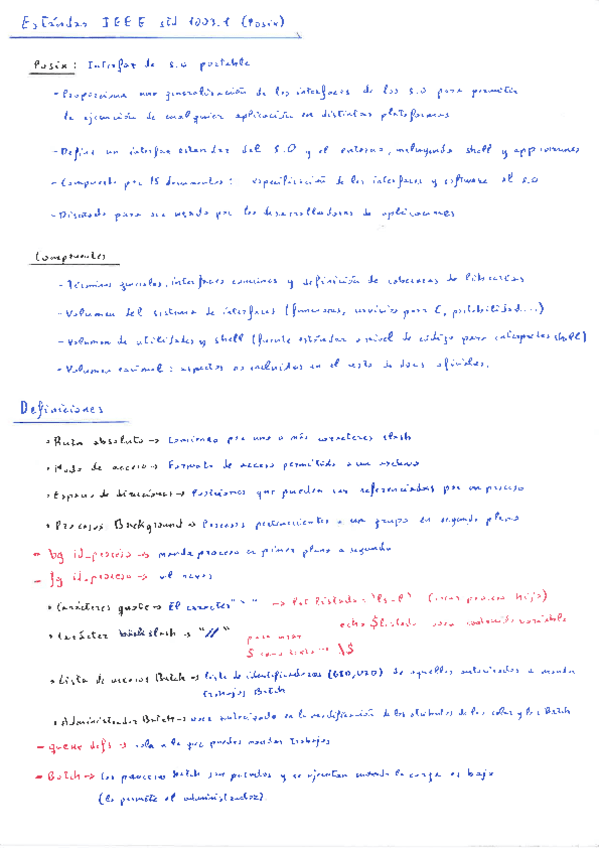 Estándar IEEE std 1003.1 (Posix)
Posix: Interfaz de S.O portable
- Proporciona una generalización de las interfaces de los S.O para permitir
la ejecución de cualquier aplicación en distintas plataformas
- Define un interfaz estandar del S.O y el entorno, incluyendo shell y applicaciones
- Compuesto por 15 documentos: especificación de las interfaces y software al S.O
- Diseñado para ser usado por los desarrolladores de aplicaciones
Componentes
- Términos generales, interfaces comunes y definición de cabeceras de librerías
- Volumen del sistema de interfaces (funciones, servicios para C, portabilidad...)
- Volumen de utilidades y shell (fuente estándar a nivel de código para interpretes shell)
- Volumen racional: aspectos no incluidos en el resto de docs oficiales.
Definiciones
• Ruta absoluta → Comienza por uno o más caracteres slash
• Modo de acceso → Formato de acceso permitido a un archivo
• Espacio de direcciones → Posiciones que pueden ser referenciadas por un proceso
• Procesos Background → Procesos pertenecientes a un grupo en segundo plano
- bg id_proceso → manda proceso en primer plano a segundo
- fg id_proceso → al reves
• Carácteres quote → El caracter → let listado = `ls -l` (crear proceso hijo)
echo $listado
• Carácter backslash → "//" para usar
$ como texto \$
• Lista de accesos Batch → lista de identificadores (GID, UID) de aquellos autorizados a mandar
trabajos Batch
• Administrador Batch → user autorizado en la modificación de los atributos de las colas y los Batch
- queue defs → cola a la que puedes mandar trabajos
- Batch → los procesos batch son parados y se ejecutan cuando la carga es baja
(lo permite el administrador)